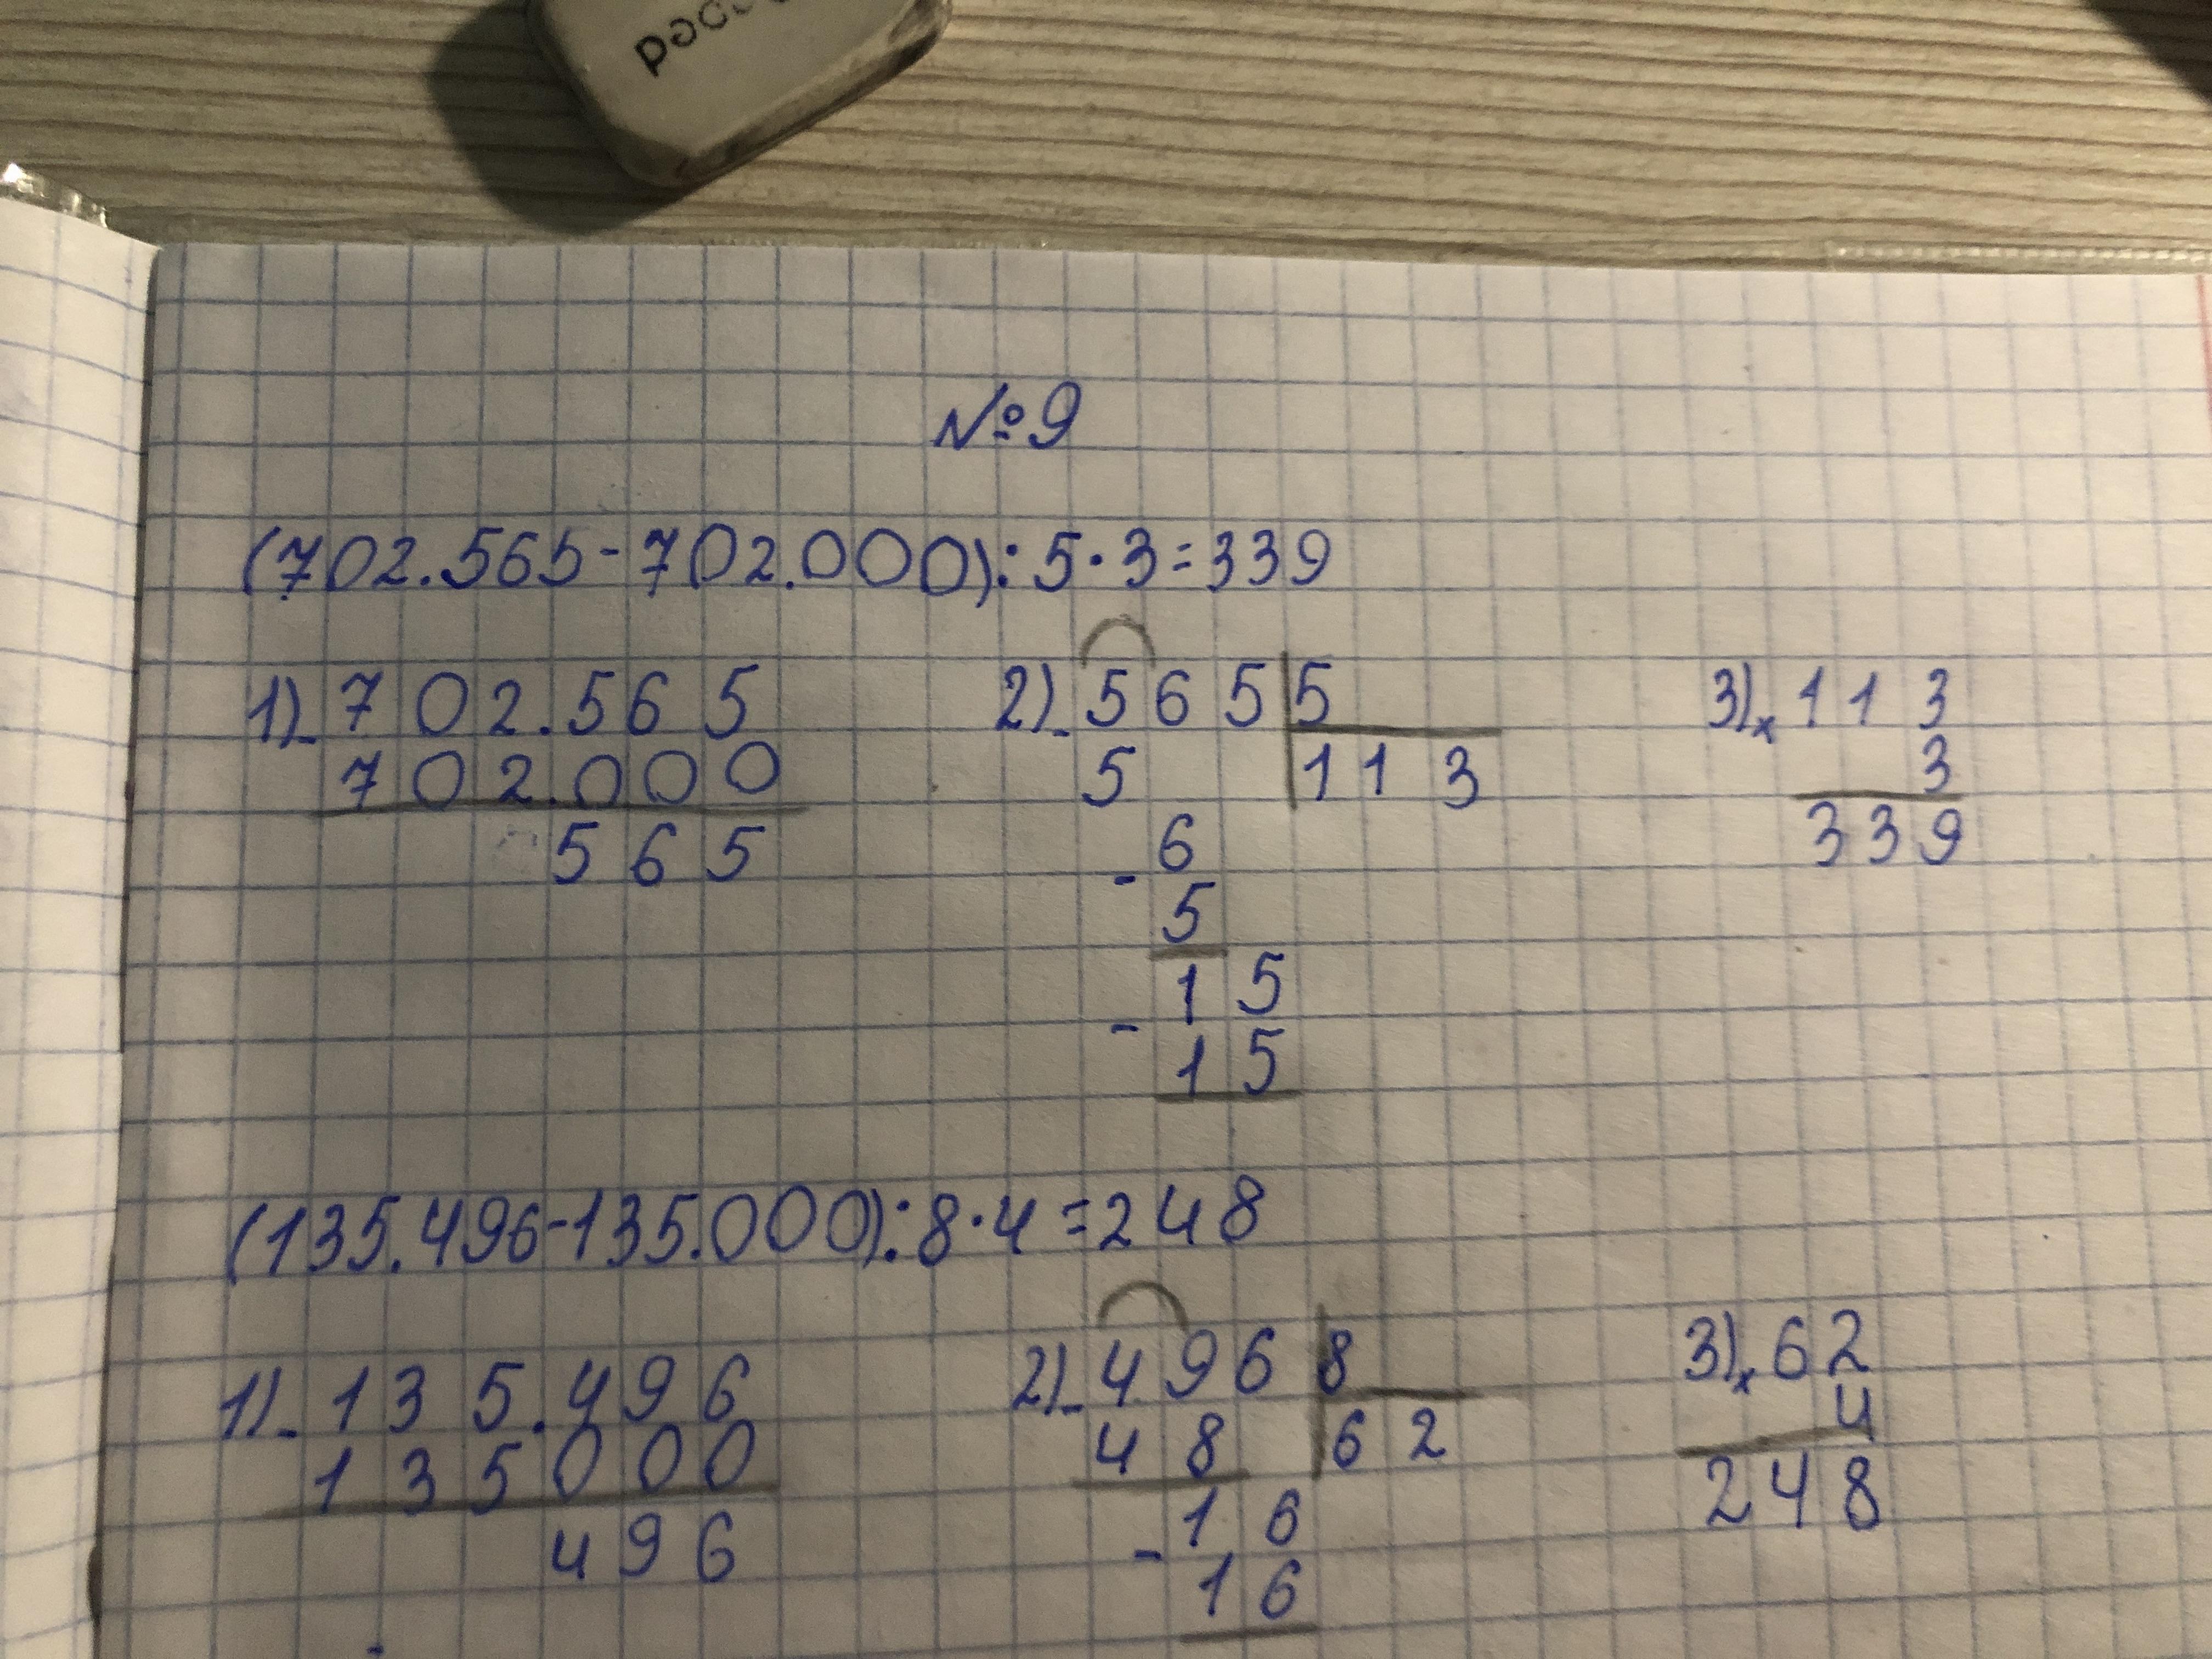 №9
(702.565-702.000):5·3=339
1)-702.565 2)-565|5 3)x113
702.000 5 113 3
565 -6 339
5
-15
15
(135.496-135.000):8·4=248
1)-135.496 2)-496|8 3)x62
135000 48 62 4
496 -16 248
16